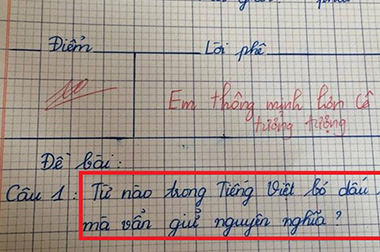 Điểm Lời phê
10 Em thông minh hơn Cô
tưởng tượng
Đề bài:
Câu 1: Từ nào trong Tiếng Việt bỏ dấu
mà vẫn giữ nguyên nghĩa?